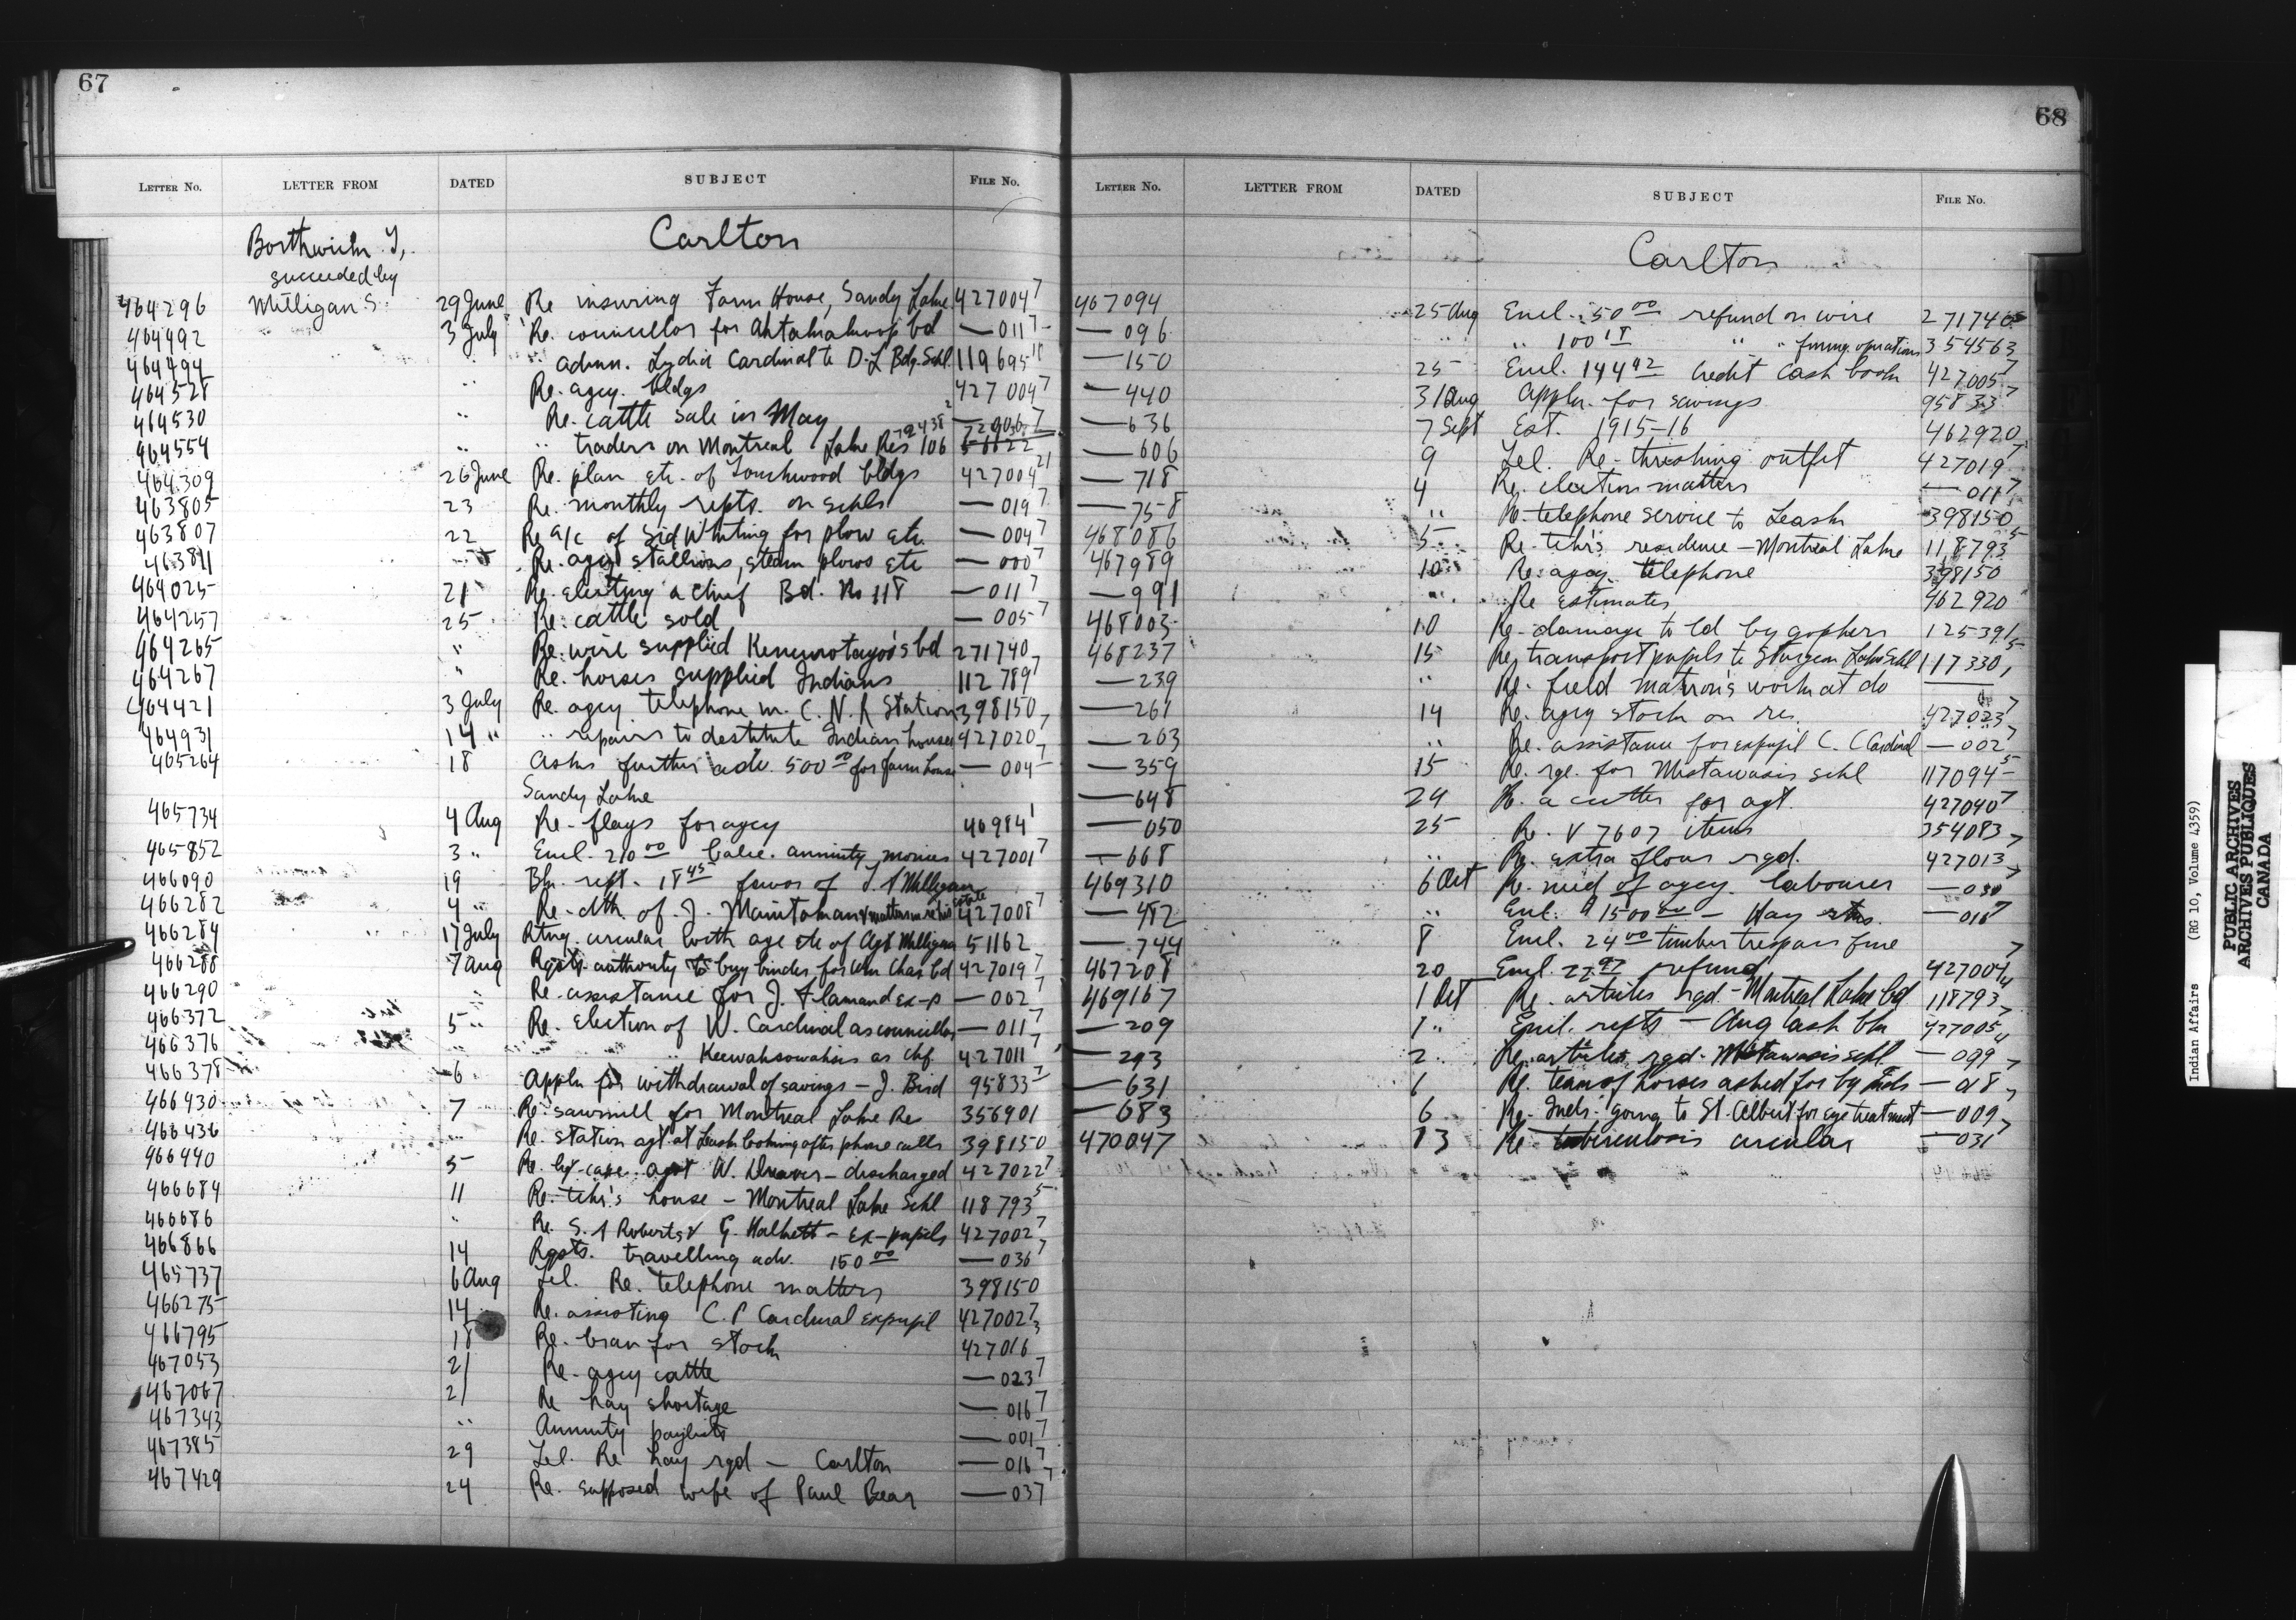 67
LETTER No. LETTER FROM DATED SUBJECT FILE No.
Borthwick T,. Carlton
succeeded by
464296 Milligan S. 29 June Re insuring Farm House, Sandy Lake 427004 7
464492 3 July Re. councillor for Ahtahakoop bd — 011 7
464494 " " admn. Lydia Cardinal to D. L Bdg. Schl 119695
464528 " Re. agcy. bldgs 427004 7
464530 " Re. cattle sale in May
464554 " " traders on Montreal Lake Res 106
464309 26 June Re. plan etc. of Touchwood bldgs 427004 21
463805 23 Re. monthly repts. on schls — 019 7
463807 22 Re a/c of Sid Whiting for plow etc. — 004 7
463811 Re. agcy stallions, steam plows etc — 000 7
464025 21 Re. electing a chief Bd. No 118 — 011 7
464257 25 Re. cattle sold — 005 7
464265 " Re. wire supplied bd 271740
464267 " Re. horses supplied Indians 112789 7
464421 3 July Re. agcy. telephone in C. N. R Station 398150
464931 14 " " repairs to destitute Indian houses 427020 7
465264 18 Asks further adv. 500 00 for farm house — 004
Sandy Lake
465734 4 Aug Re. flags for agcy 46984 1
465852 3 " Encl. 210 00 balce. annuity monies 427001 7
466090 19 Bk. rept. 18 45 favor of Milligan
466282 4 " Re. dth. of J. Manitoman & matters in re his estate 427008 7
466284 17 July Rtng. circular with age etc of Agt Milligan 51162
466288 7 Aug Rqsts. authority to buy binder for Wm Chas bd 427019 7
466290 " Re. assistance for J. Flamand Ex-p — 002 7
466372 5 " Re. Election of W. Cardinal as councillor — 011 7
466376 " " Keewahsowahsis as chf. 427011 7
466378 6 Appln for withdrawal of savings — J. Bird 95833 7
466430 7 Re. sawmill for Montreal Lake Re 356901
466436 " Re. station agt. at Leask looking after phone calls 398150
466440 5 Re. lqr. case. agst W. Dreaver — discharged 427022 7
466684 11 Re. tchr's house — Montreal Lake Schl 118793 5
466686 " Re. S. A Roberts & G. Halkett — Ex-pupils 427002 7
466866 14 Rqsts. travelling adv. 150 00 — 036 7
465737 6 Aug Tel. Re. telephone matters 398150
466275 14 Re. assisting C. P Cardinal Expupil 427002 7
466795 18 Re. bran for stock 427016
467053 21 Re. agcy cattle — 023 7
467067 21 Re hay shortage — 016 7
467343 " Annuity paylists — 001 7
467385 29 Tel. Re hay rqd — Carlton — 016 7
467429 24 Re. supposed wife of Paul Bear — 037
68
LETTER No. LETTER FROM DATED SUBJECT FILE No.
Carlton
467094 25 Aug Encl. 50 00 refund on wire 271740
— 096 " " 100 18 " " frmng. operations 354563
— 150 25 Encl. 144 92 Credit Cash book 427005 7
— 440 31 Aug Appln. for savings 95833 7
— 636 7 Sept Est. 1915-16 462920
— 606 9 Tel. Re. threshing outfit 427019 7
— 718 4 Re. election matters — 011 7
— 758 " Re. telephone service to Leask 398150
468086 5 Re. tchr's residence — Montreal Lake 118793 5
467989 10 Re. agcy. telephone 398150
— 991 " Re estimates 462920
468003 10 Re. damage to ld by gophers 125391
468237 15 Re. transport pupils to Sturgeon Lake Schl 117330 5
— 239 " Re. field matron's work at do —
— 261 14 Re. agcy stock on res. 427023 7
— 263 " Re. assistance for expupil C. C Cardinal — 002 7
— 359 15 Re. rge. for Mistawasis schl 117094 5
— 648 24 Re. a cutter for agt. 427040 7
— 650 25 Re. V 7607 items 354083
— 668 " Re. extra flour rqd. 427013 7
469310 6 Oct Re. need of agcy. labourer — 030
— 482 " Encl. $1500 00 — Hay — 016 7
— 744 8 Encl. 24 00 timber trespass fine
467208 20 Encl. 27.97 refund 427004
469167 1 Oct Re. articles rqd. — Montreal Lake bd 118793
— 209 1 " Encl. repts — Aug Cash bk 427005
— 293 2 " Re. articles rqd. Mistawasis schl — 099
— 631 1 Re. team of horses asked for by Inds — 018
— 683 6 Re. Inds. going to St. Albert for eye treatment — 009
470047 13 Re tuberculosis circular — 031
Indian Affairs (RG 10, Volume 4359)
PUBLIC ARCHIVES
ARCHIVES PUBLIQUES
CANADA